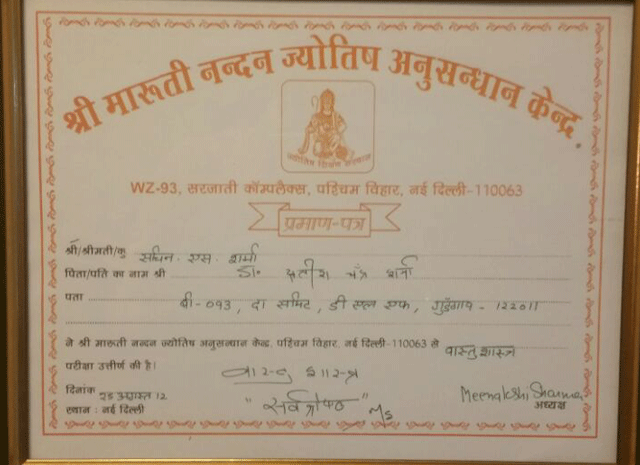 श्री मारूती नन्दन ज्योतिष अनुसन्धान केन्द्र
ज्योतिष शिक्षा संस्थान
WZ-93, सरजाती कॉम्पलैक्स, पश्चिम विहार, नई दिल्ली-110063
प्रमाण-पत्र
श्री/श्रीमती/कु सचिन. एस. शर्मा
पिता/पति का नाम श्री डा० सतीश चंद्र शर्मा
पता बी-093, दा समिट, डी एल एफ, गुड़गाव - 122011
ने श्री मारूती नन्दन ज्योतिष अनुसन्धान केन्द्र, पश्चिम विहार, नई दिल्ली-110063 से वास्तुशास्त्र
परीक्षा उत्तीर्ण की है। वास्तु शास्त्र
दिनांक 25 अगस्त 12
स्थान : नई दिल्ली "सर्वश्रेष्ठ" Ms
Meenakshi Sharma
अध्यक्ष